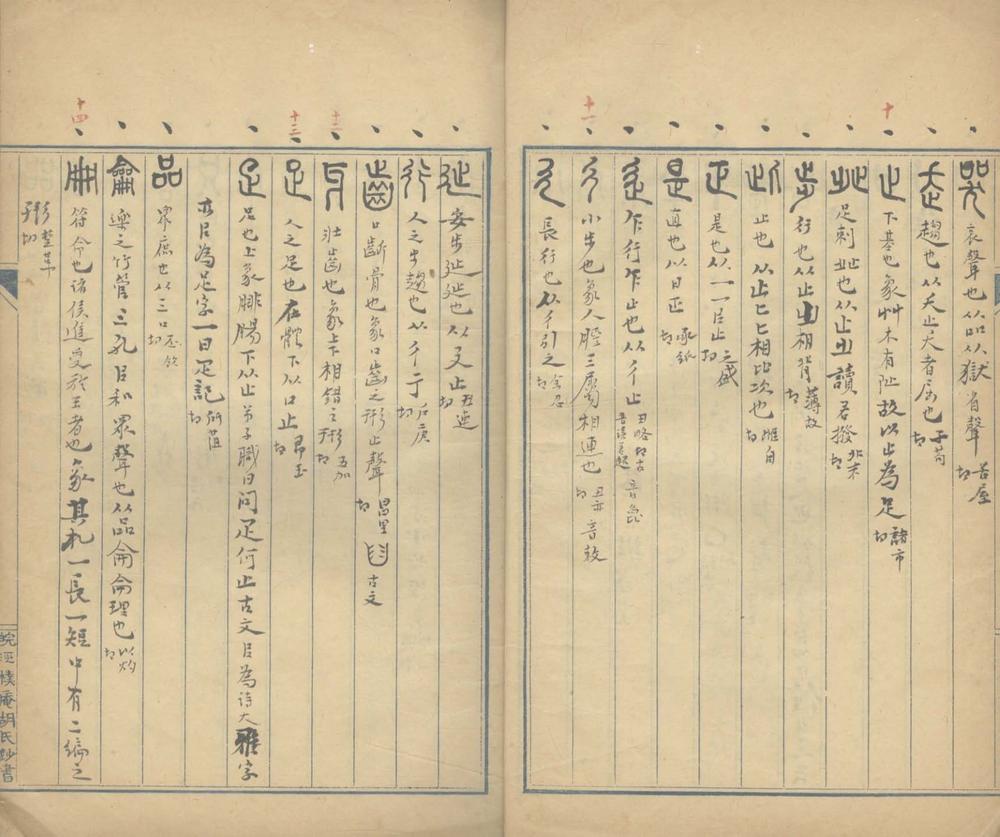 哭 哀聲也从吅从獄省聲 苦屋切
走 趨也从夭止夭者屈也 子苟切
止 下基也象艸木有阯故以止為足 諸市切
癶 足剌癶也从止𣥂讀若撥 北末切
步 行也从止𣥂相背 薄故切
此 止也从止匕匕相比次也 雌氏切
正 是也从一一㠯止 之盛切
是 直也从日正 承紙切
辵 乍行乍止也从彳止 丑略切
彳 小步也象人脛三屬相連也 丑亦切
廴 長行也从彳引之 余忍切
㢟 安步㢟㢟也从廴止 丑連切
行 人之步趨也从彳亍 户庚切
齒 口齗骨也象口齒之形止聲 昌里切 𦥒 古文
牙 壯齒也象上下相錯之形 五加切
足 人之足也在體下从口止 即玉切
疋 足也上象腓腸下从止弟子職曰問疋何止古文㠯為詩大雅字
亦㠯為足字一曰疋記 所菹切
品 眾庶也从三口 丕飲切
龠 樂之竹管三孔㠯和眾聲也从品侖侖理也 以灼切
冊 符命也諸侯進受於王者也象其札一長一短中有二編之
形 楚革切
十
十一
十二
十三
十四
皖涇樸庵胡氏鈔書